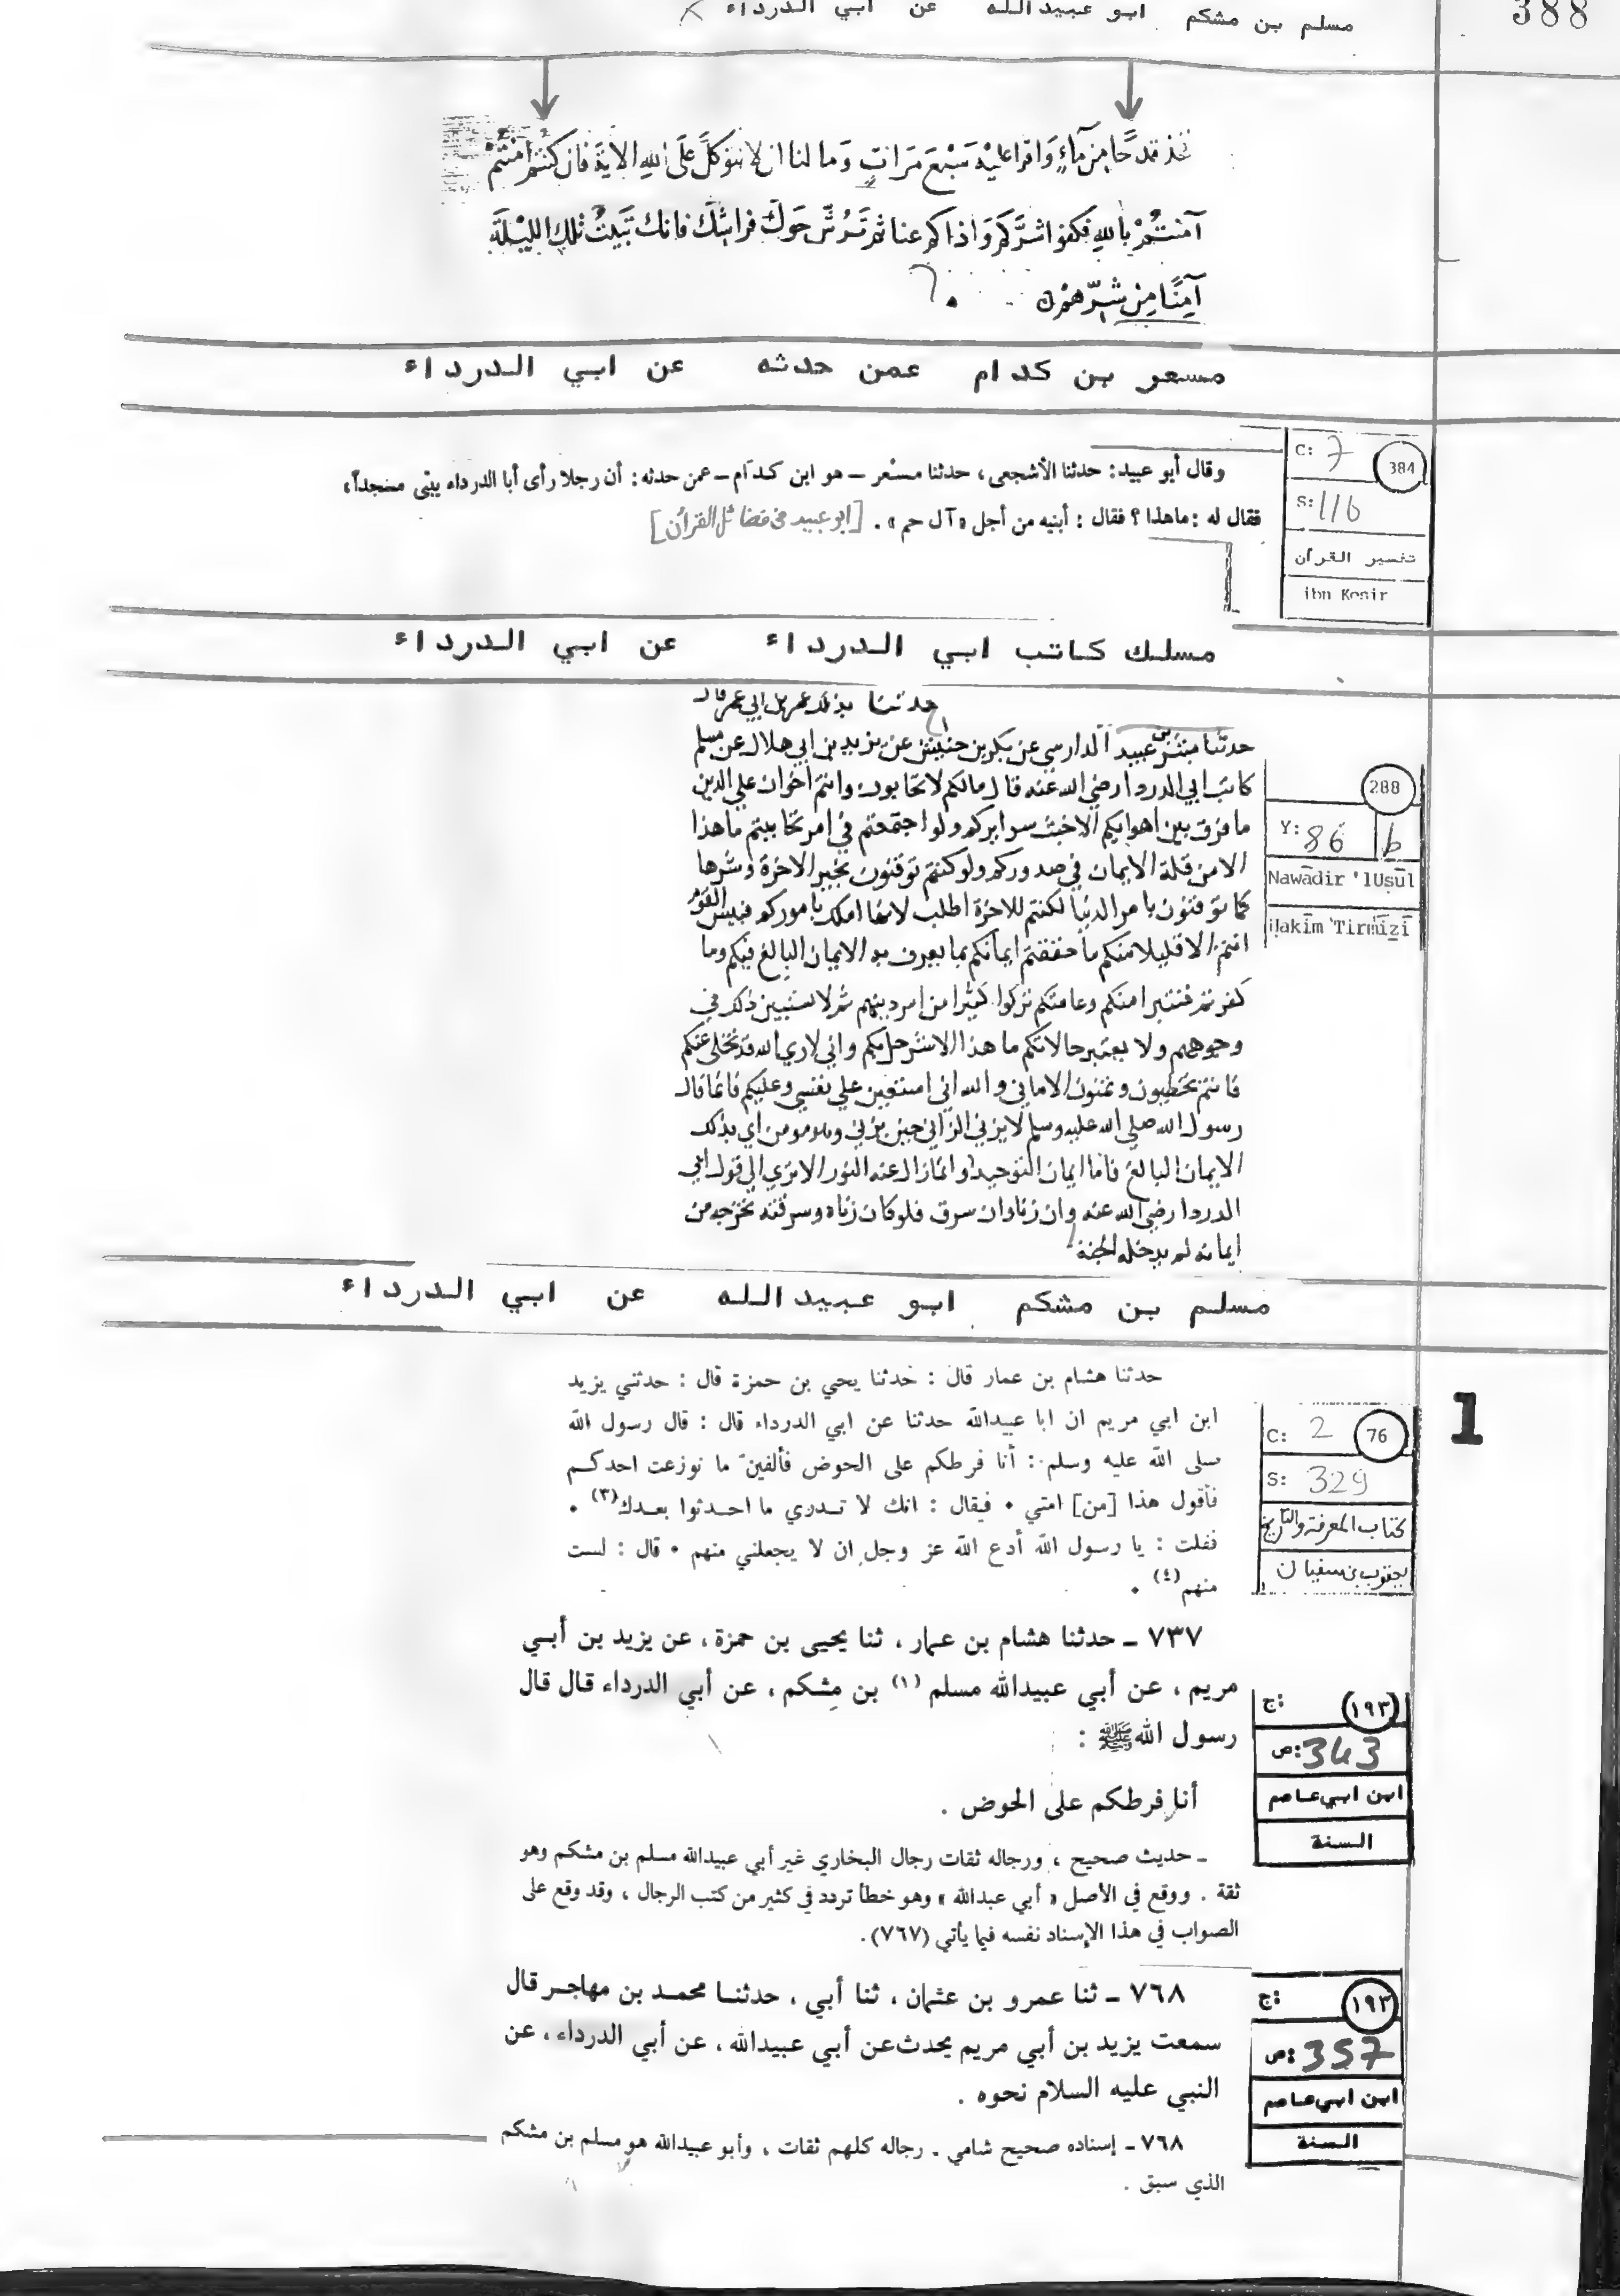 388
مسلم بن مشكم ابو عبيدالله عن ابي الدرداء
فخذ قدحًا مِن مآءٍ وَاقرا عليْه سَبْعَ مَرَاتٍ وَمالنا ان لا نتوكلَّ عَلَى اللهِ الايَة فان كنتم امنتمْ
آمنتُمْ باللهِ فكفوا شرَّكم وَاذاكم عنا ثم تَرُشّ حَولَ فراشِكَ فانك تَبَيْتُ تلك الليْلَة
آمِنًا مِن شرّهمْ
مسعر بن كدام عمن حدثه عن ابي الدرداء
C: 7 384
S: 116
تفسير القرآن
ibn Kesir
وقال أبو عبيد: حدثنا الأشجعى، حدثنا مسْعر – هو ابن كدام – عمن حدثه: أن رجلا رأى أبا الدرداء يبْنى مسجداً،
فقال له: ماهذا؟ فقال: أبنيه من أجل «آل حم». [ابو عبيد فى فضائل القرآن]
مسلك كاتب ابي الدرداء عن ابي الدرداء
حدثنا بذلك عمر بن ابي عمر قال
حدثنا بشر بن عبيد الدارسي عن بكر بن خنيش عن يزيد بن ابي هلال عن مسلم
كاتب ابي الدردا رضي الله عنه قال مالكم لا تحابون وانتم اخوان علي الدين
ما فرق بين اهوايكم الا خبث سرايركم ولو اجتمعتم في امر تحاببتم ما هذا
الا من قلة الايمان في صدوركم ولو كنتم توقنون بخير الاخرة وشرها
كما توقنون بامر الدنيا لكنتم للاخرة اطلب لانها املك باموركم فبيس القوم
انتم الا قليلا منكم ما حققتم ايمانكم بما يعرف به الايمان البالغ فيكم وما
كفرتم فنتبرا منكم وعامتكم تركوا كثيرا من امر دينهم ثم لا يستبين ذلك في
وجوههم ولا يعتبر حالاتكم ما هذا الا شر حل بكم واني لاري الله قد تخلي عنكم
فانتم تخطيون وتمنون الاماني والله اني استعين علي نفسي وعليكم فانما قال
رسول الله صلي الله عليه وسلم لا يزني الزاني حين يزني وهو مومن اي بذلك
الايمان البالغ فاما ايمان التوحيد وانما زال عنه النور الا تري الي قول ابي
الدردا رضي الله عنه وان زنا وان سرق فلو كان زناه وسرقته تخرجه من
ايمانه لم يدخله الجنة
288
Y: 86 b
Nawādir 'lUṣūl
Ḥakīm 'Tirmīzī
مسلم بن مشكم ابو عبيدالله عن ابي الدرداء
1
C: 2 76
S: 329
كتاب المعرفة والتاريخ
يعقوب بن سفيان
حدثنا هشام بن عمار قال : حدثنا يحي بن حمزة قال : حدثني يزيد
ابن ابي مريم ان ابا عبيدالله حدثنا عن ابي الدرداء قال : قال رسول الله
صلى الله عليه وسلم : أنا فرطكم على الحوض فألفين ما نوزعت احدكم
فأقول هذا [من] امتي • فيقال : انك لا تدري ما احدثوا بعدك(٣) •
فقلت : يا رسول الله أدع الله عز وجل ان لا يجعلني منهم • قال : لست
منهم(٤) •
٧٣٧ ـ حدثنا هشام بن عمار ، ثنا يحيى بن حمزة ، عن يزيد بن أبي
مريم ، عن أبي عبيدالله مسلم (١) بن مِشكم ، عن أبي الدرداء قال قال
رسول الله ﷺ :
أنا فرطكم على الحوض .
ج: (١٩٣)
ص: 343
ابن ابي عاصم
السنة
ـ حديث صحيح ، ورجاله ثقات رجال البخاري غير أبي عبيدالله مسلم بن مشكم وهو
ثقة . ووقع في الأصل « أبي عبدالله » وهو خطأ تردد في كثير من كتب الرجال ، وقد وقع على
الصواب في هذا الإسناد نفسه فيما يأتي (٧٦٧) .
٧٦٨ ـ ثنا عمرو بن عثمان ، ثنا أبي ، حدثنا محمد بن مهاجر قال
سمعت يزيد بن أبي مريم يحدث عن أبي عبيدالله ، عن أبي الدرداء ، عن
النبي عليه السلام نحوه .
ج: ١٩٣
ص: 357
ابن ابي عاصم
السنة
٧٦٨ ـ إسناده صحيح شامي . رجاله كلهم ثقات ، وأبو عبيدالله هو مسلم بن مشكم
الذي سبق .